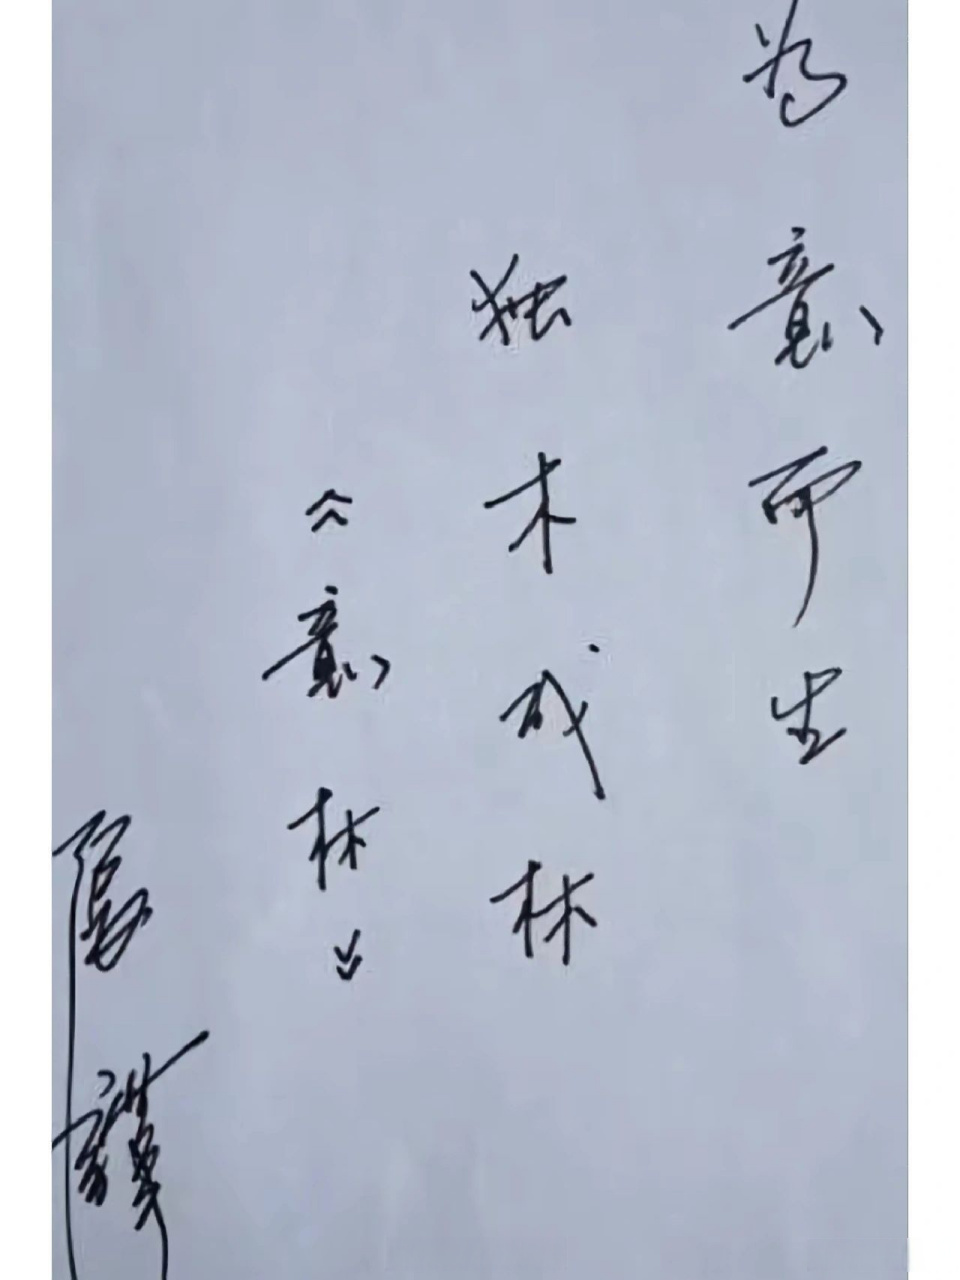 为意而生
独木成林
《意林》